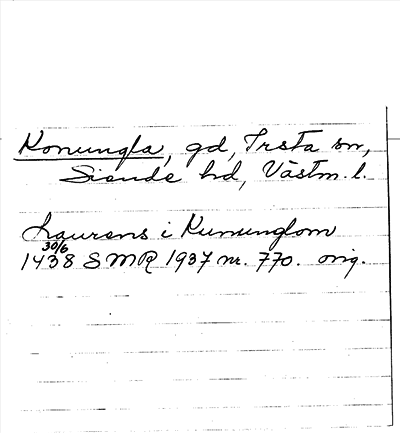 Konungla, gd, Irsta sn,
Siende hd, Västm. l.
Laurens i Kununglom
30/6
1438 SMR 1937 nr. 770. orig.